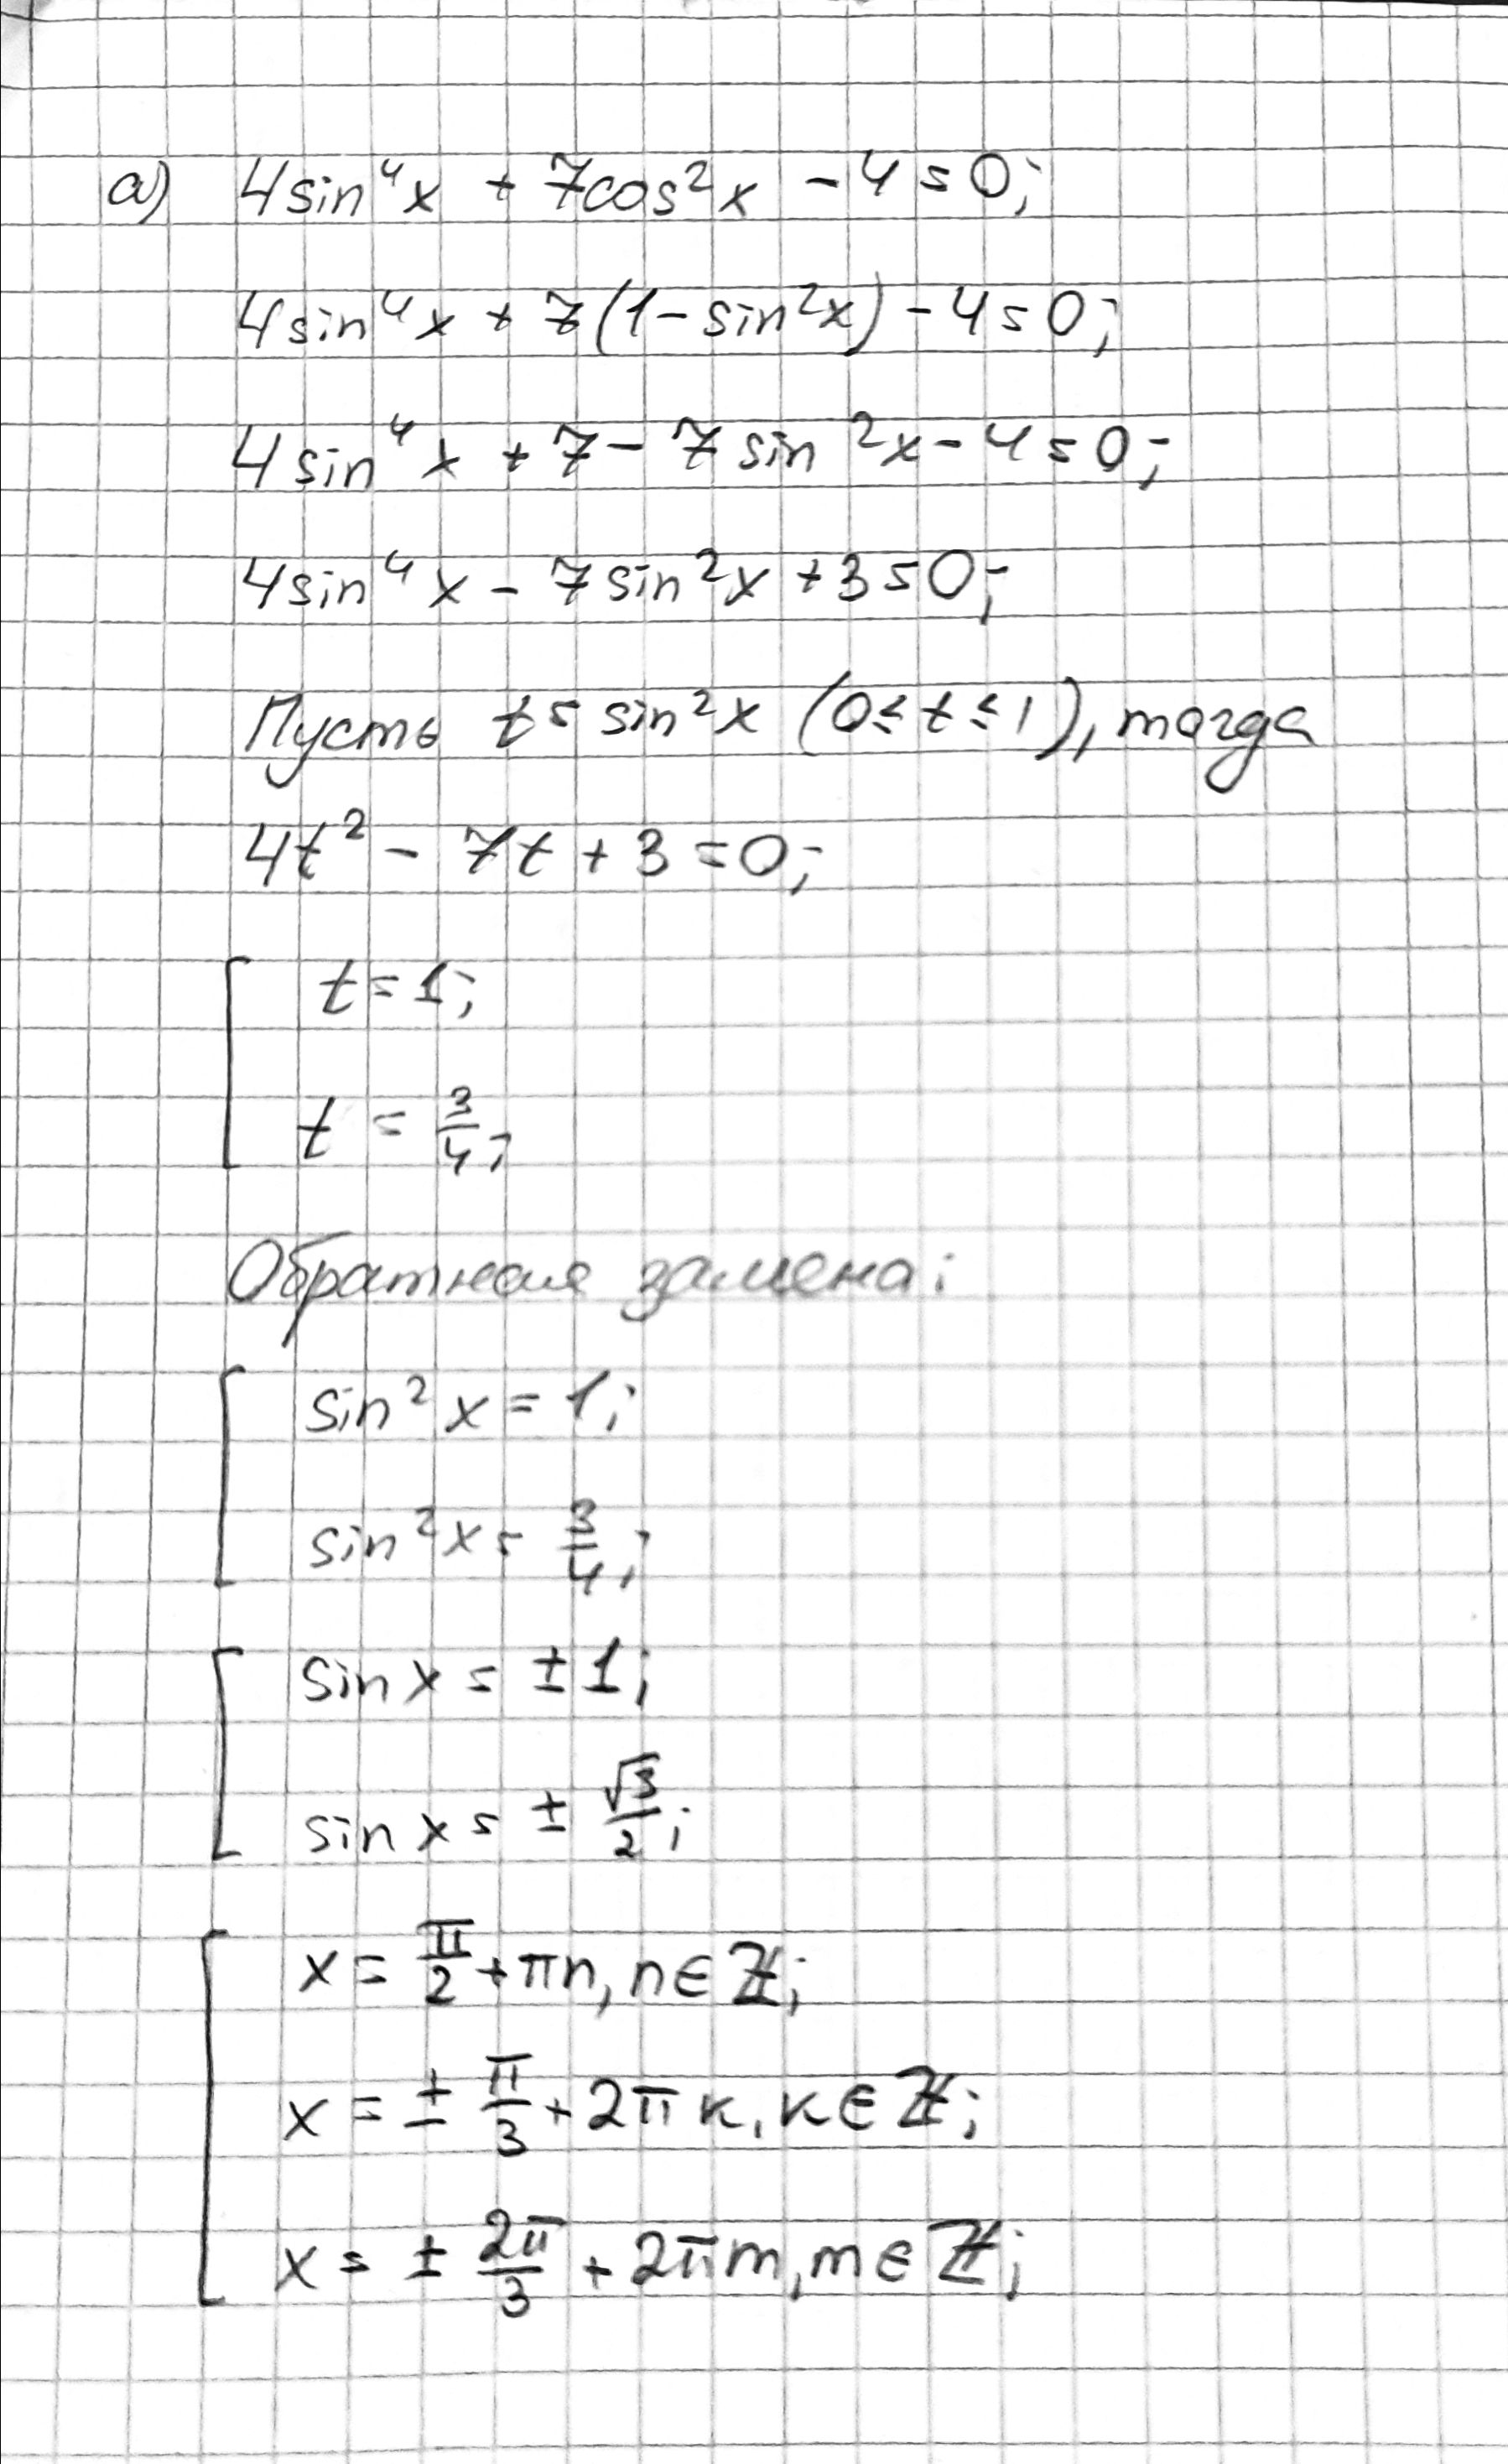 а) 4sin⁴x + 7cos²x - 4 = 0;
4sin⁴x + 7(1 - sin²x) - 4 = 0;
4sin⁴x + 7 - 7sin²x - 4 = 0;
4sin⁴x - 7sin²x + 3 = 0;
Пусть t = sin²x (0 ≤ t ≤ 1), тогда
4t² - 7t + 3 = 0;
t = 1;
t = 3/4;
Обратная замена:
sin²x = 1;
sin²x = 3/4;
sin x = ± 1;
sin x = ± √3/2;
x = π/2 + πn, n ∈ ℤ;
x = ± π/3 + 2πк, к ∈ ℤ;
x = ± 2π/3 + 2πm, m ∈ ℤ;